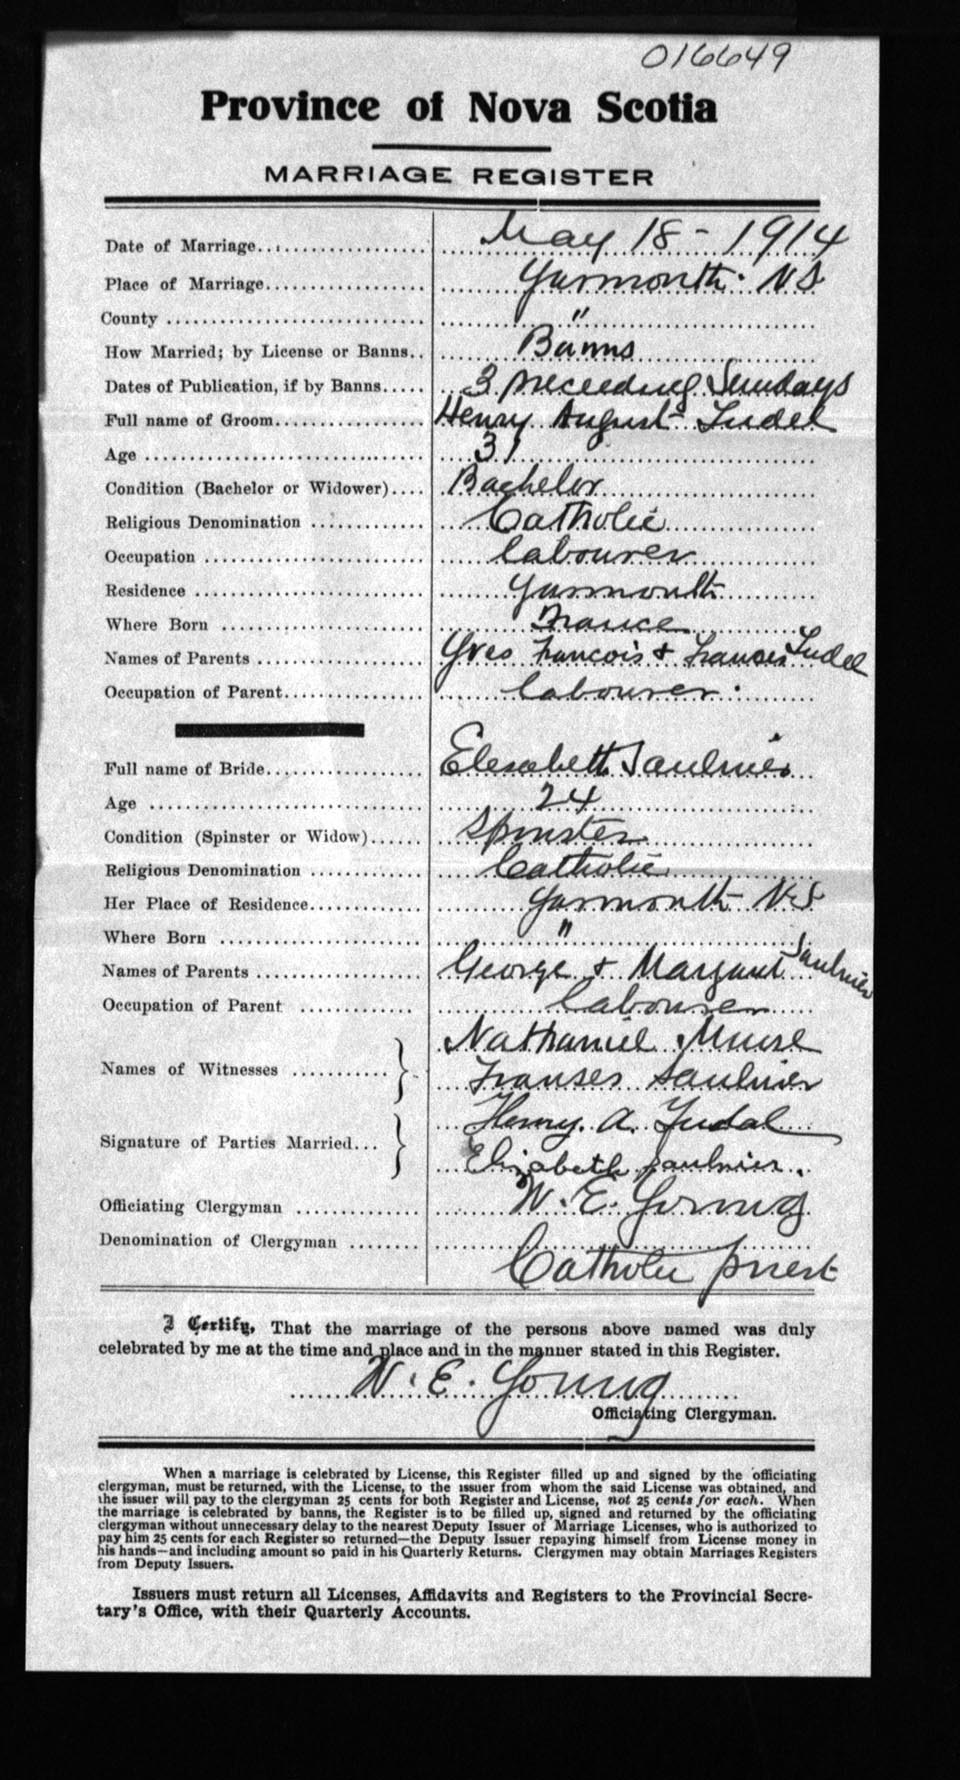 016649
Province of Nova Scotia
MARRIAGE REGISTER
Date of Marriage.................. May 18 - 1914
Place of Marriage.................. Yarmouth NS
County .................. "
How Married; by License or Banns.. Banns
Dates of Publication, if by Banns..... 3 preceeding Sundays
Full name of Groom.................. Henry August Judel
Age .................. 31
Condition (Bachelor or Widower).... Bachelor
Religious Denomination ............. Catholic
Occupation .................. labourer
Residence .................. Yarmouth
Where Born .................. France
Names of Parents .................. Yves Francois & Franses Judel
Occupation of Parent.................. labourer
Full name of Bride.................. Elesabeth Saulnier
Age .................. 24
Condition (Spinster or Widow)...... Spinster
Religious Denomination ............. Catholic
Her Place of Residence............. Yarmouth N.S
Where Born .................. "
Names of Parents .................. George & Margaret Saulnier
Occupation of Parent ............. labourer
Names of Witnesses ........... Nathaniel Muise
Franses Saulnier
Signature of Parties Married... Henry. A. Judal
Elizabeth Saulnier.
Officiating Clergyman .............. W. E. Young
Denomination of Clergyman ........ Catholic priest
I Certify, That the marriage of the persons above named was duly
celebrated by me at the time and place and in the manner stated in this Register.
W. E. Young
Officiating Clergyman.
When a marriage is celebrated by License, this Register filled up and signed by the officiating
clergyman, must be returned, with the License, to the issuer from whom the said License was obtained, and
the issuer will pay to the clergyman 25 cents for both Register and License, not 25 cents for each. When
the marriage is celebrated by banns, the Register is to be filled up, signed and returned by the officiating
clergyman without unnecessary delay to the nearest Deputy Issuer of Marriage Licenses, who is authorized to
pay him 25 cents for each Register so returned—the Deputy Issuer repaying himself from License money in
his hands—and including amount so paid in his Quarterly Returns. Clergymen may obtain Marriages Registers
from Deputy Issuers.
Issuers must return all Licenses, Affidavits and Registers to the Provincial Secre-
tary's Office, with their Quarterly Accounts.